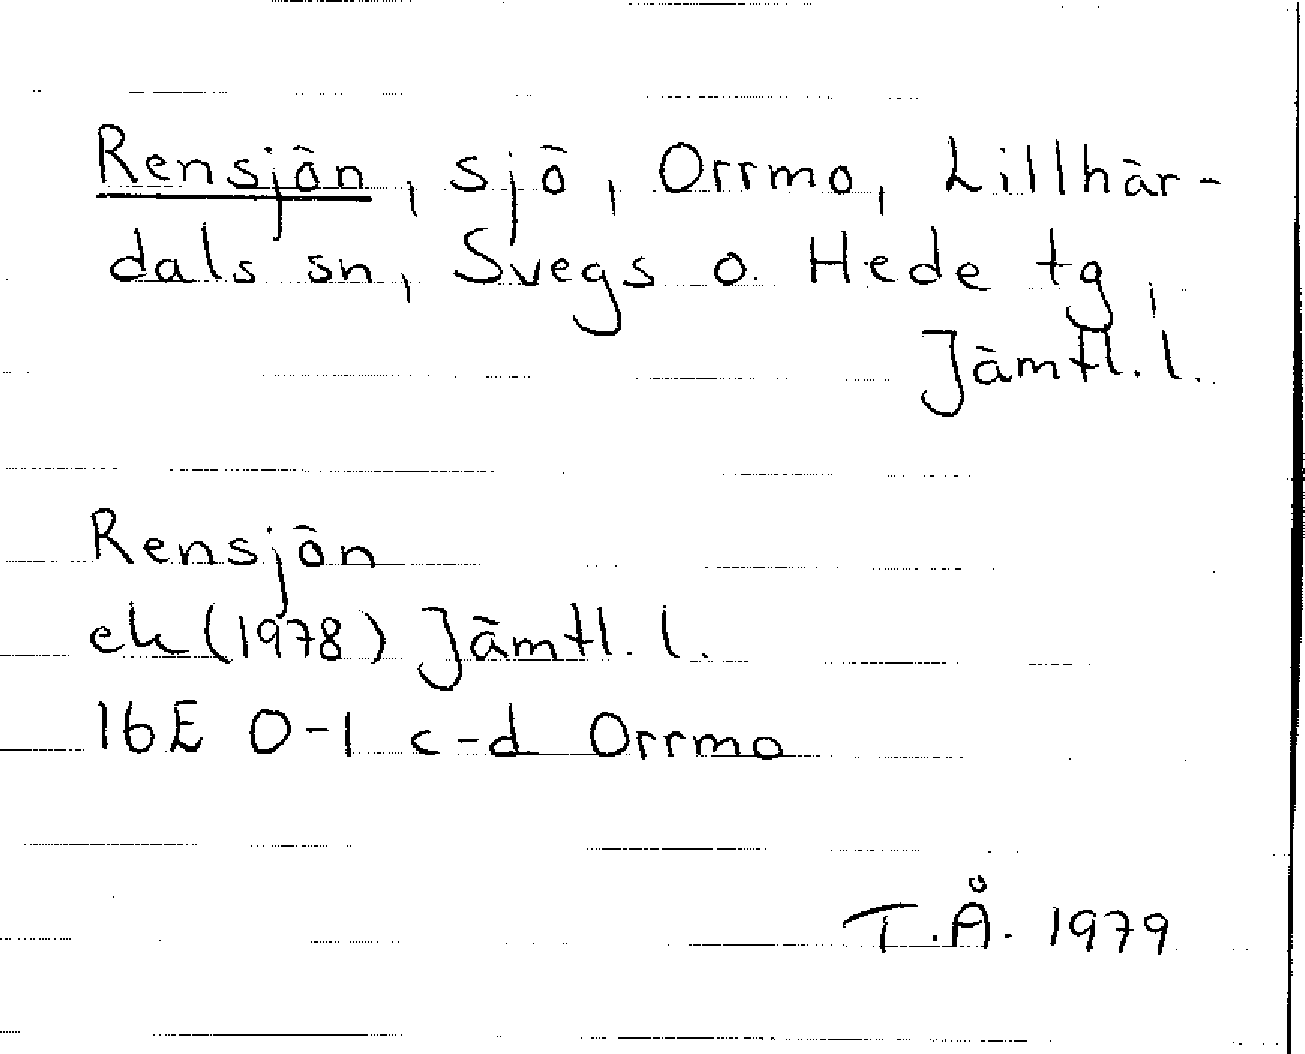 Rensjön, sjö, Orrmo, Lillhär-
dals sn, Svegs o. Hede tg,
Jämtl. l.
Rensjön
ek (1978) Jämtl. l.
16E 0-1 c-d Orrmo
T.Å. 1979